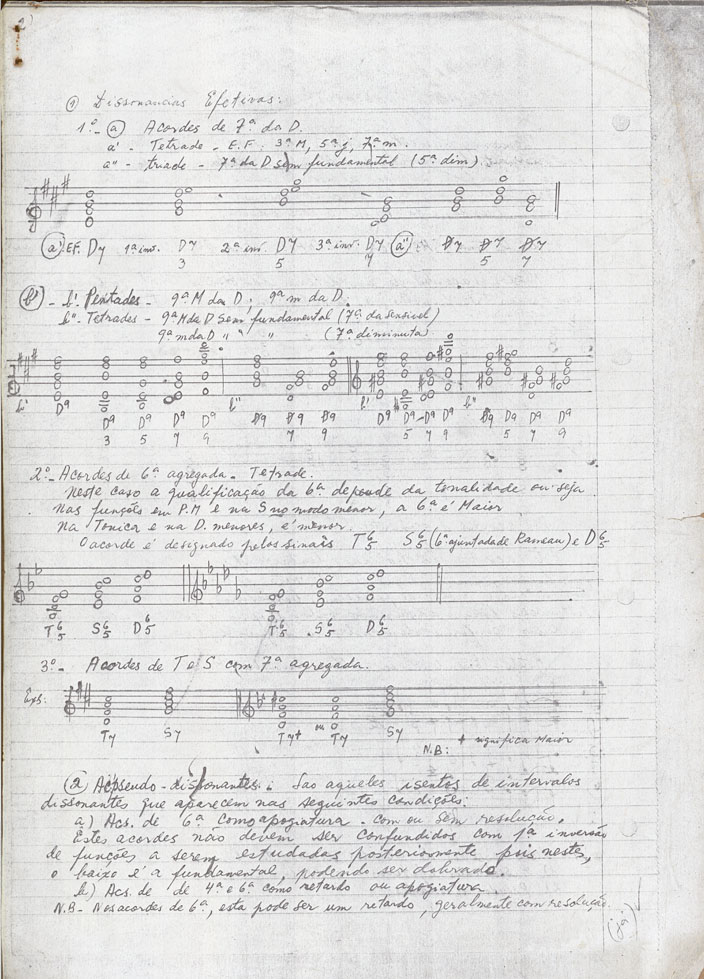 ① Dissonancias Efetivas:
1º- ⓐ Acordes de 7ª da D.
a' - Tetrade - E.F. 3ª M, 5ª j, 7ª m.
a" - triade - 7ª da D sem fundamental (5ª dim).
a' EF. D7 1ª inv. D7 2ª inv. D7 3ª inv. D7 a" D7 D7 D7
3 5 7 5 7
b' - b'. Pentades - 9ª M da D; 9ª m da D.
b" - Tetrades - 9ª M da D Sem fundamental (7ª da sensivel)
9ª m da D " " " (7ª diminuta)
b' D9 D9 D9 D9 D9 b" D9 D9 D9 b' D9 D9 - D9 D9 b" D9 D9 D9 D9
3 5 7 9 7 9 5 7 9 5 7 9
2º- Acordes de 6ª agregada - Tetrade.
Neste caso a qualificação da 6ª depende da tonalidade ou seja
Nas funções em P.M e na S no modo menor, a 6ª é Maior
Na Tonica e na D. menores, é menor.
O acorde é designado pelos sinais T 6/5 S 6/5 (6ª ajuntada de Rameau) e D 6/5
T 6/5 S 6/5 D 6/5 T 6/5 S 6/5 D 6/5
3º- Acordes de T e S com 7ª agregada.
Exs: T7 S7 T7+ m T7 S7
N.B: + significa Maior
② Ac. pseudo-dissonantes: São aqueles isentos de intervalos
dissonantes que aparecem nas seguintes condições:
a) Acs. de 6ª como apogiatura - com ou sem resolução.
Estes acordes não devem ser confundidos com 1ª inversão
de funções a serem estudadas posteriormente pois nestes,
o baixo é a fundamental, podendo ser dobrado.
b) Acs. de de 4ª e 6ª como retardo ou apogiatura.
N.B - Nos acordes de 6ª, esta pode ser um retardo, geralmente com resolução.
(já)